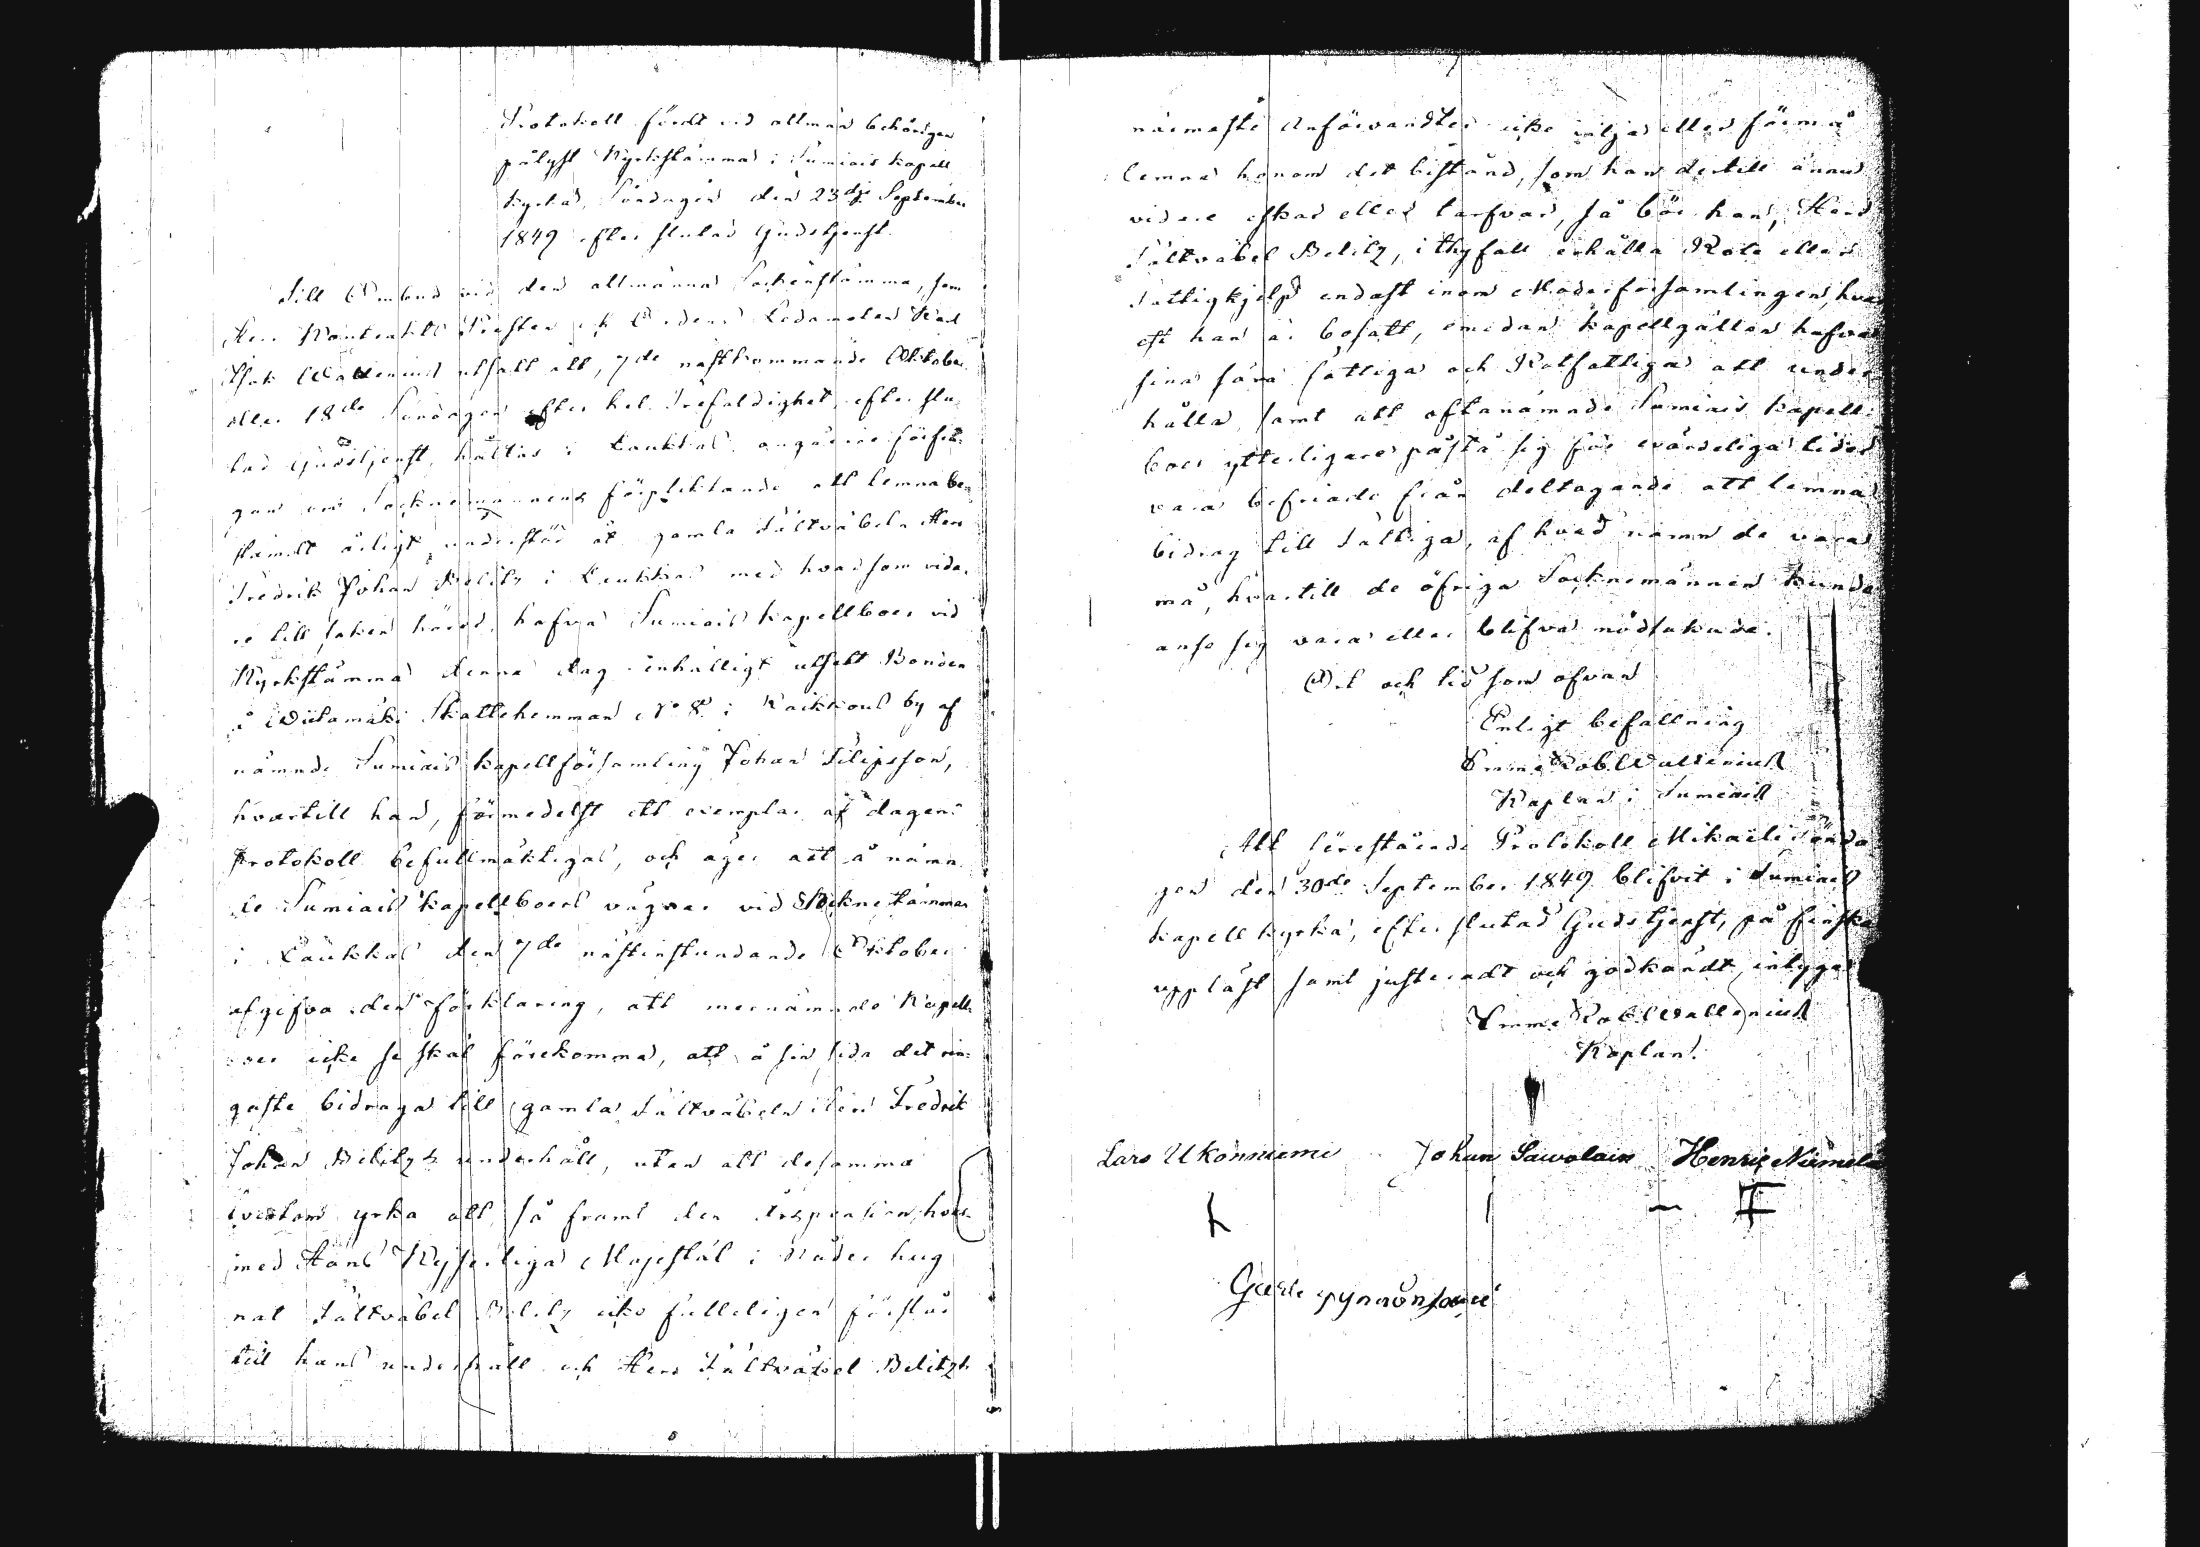 Protokoll fördt vid allmän behörigen
pålyst Kyrkstämma i Sumiais kapell
kyrka, Söndagen den 23dje September
1849 efter slutad Gudstjenst.
Till Ombud vid den allmänna Sockenstämma, som
Herr Kontrakts Prosten och Ordens Ledamoten Karl
Isak Wallenius utsatt att, 7de nästkommande Oktober
eller 18de Söndagen efter hel. Trefaldighet, efter slu-
tad Gudstjenst, hållas i Laukkas, angående förfrå-
gan om Socknemannens förpliktande att lemna be-
stämdt årligt understöd åt gamla Fältväbeln Herr
Fredrik Johan Belitz i Laukkas med hvad som vida-
re till saken hörer, hafva Sumiais kapellboer vid
Kyrkstämma denna dag enhälligt utsett Bonden
å Wiitamäki Skattehemman No 8 i Raikkous by af
nämnde Sumiais kapellförsamling Johan Filipsson,
hvartill han, förmedelst ett exemplar af dagens
Protokoll befullmäktigas, och äger att å nämn-
de Sumiais kapellboers vägnar vid Sockne stämman
i Laukkas den 7de nästinstundande Oktober
afgifva den förklaring, att mernämnde Kapell-
boer icke se skäl förekomma, att å sin sida det rin-
gaste bidraga till gamla Fältväbeln Herr Fredrik
Johan Belitz's underhåll, utan att desamma
tvertom yrka att, så framt den pension, hvar-
med Hans Kejserliga Majestät i Nåder hug
nat Fältväbel Belitz icke fulleligen förslår
till hans underhåll och Herr Fältväbel Belitzs
närmaste Anförvandter icke vilja eller förmå
lemna honom det bistånd, som han dertill ännu
vidare eskar eller tarfvar, så bör han, Herr
Fältväbel Belitz, i thy fall erhålla Rote eller
Fattighjelp endast inom Moderförsamlingen, hvar
est han är bosatt, emedan kapellgällen hafva
sina fåna fattiga och Rotfattiga att under
hålla, samt att oftanämnde Sumiais kapell-
boer ytterligare påstå sig för evärdeliga tider
vara befriade från deltagande att lemna
bidrag till Fattiga, af hvad namn de vara
må, hvartill de öfriga Socknemännen kunde
anse sig vara eller blifva nödsakade.
Ort och tid som ofvan
Enligt befallning
Emme Rob. Wallenius
Kaplan i Sumiais
Att förestående Protokoll Mikaeli Sönda
gen den 30de September 1849 blifvit i Sumiais
kapell kyrka, efter slutad Gudstjenst, på finska
uppläst samt justeradt och godkändt, intygar
Emme Rob. Wallenius
Kaplan.
Lars Ukonniemi Johan Sawolain Henric Niemelä